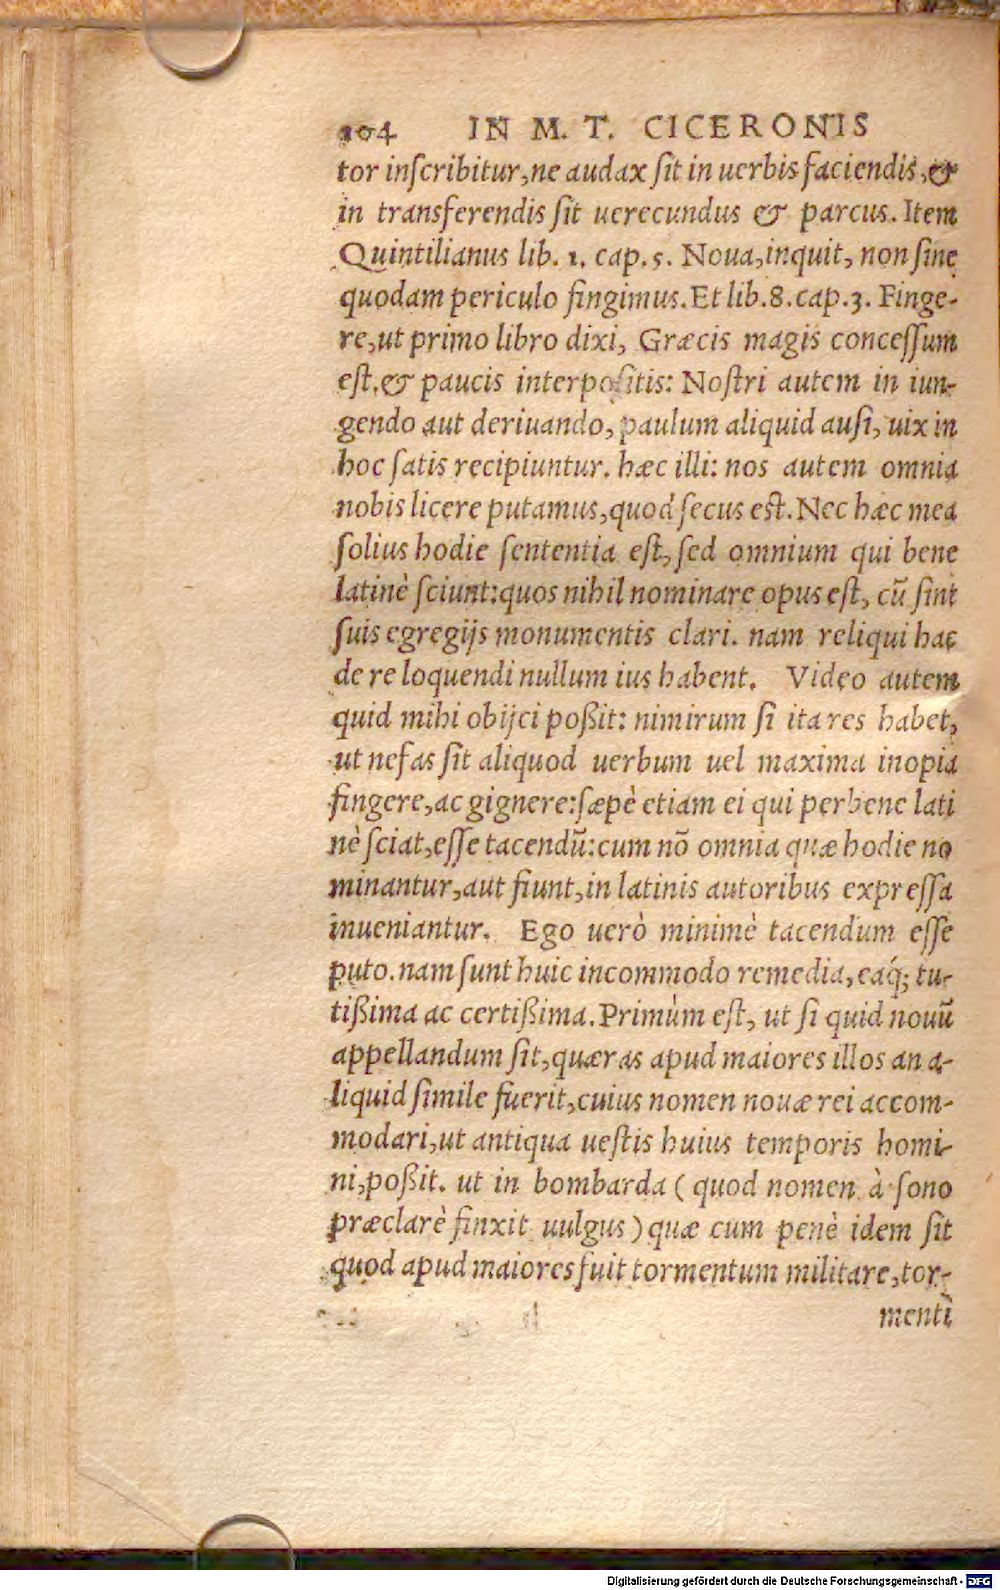 104 IN M. T. CICERONIS
tor inſcribitur,ne audax ſit in uerbis faciendis,&
in transferendis ſit uerecundus & parcus. Item
Quintilianus lib. 1. cap. 5. Noua,inquit, non ſine
quodam periculo fingimus. Et lib. 8. cap. 3. Finge-
re,ut primo libro dixi, Græcis magis conceſſum
eſt.& paucis interpoſitis: Noſtri autem in iun-
gendo aut deriuando, paulum aliquid auſi, uix in
hoc ſatis recipiuntur. hæc illi: nos autem omnia
nobis licere putamus,quod ſecus eſt. Nec hæc mea
ſolius hodie ſententia eſt, ſed omnium qui bene
latinè ſciunt:quos nihil nominare opus eſt, cū ſint
ſuis egregijs monumentis clari. nam reliqui hac
de re loquendi nullum ius habent. Video autem
quid mihi obijci poßit: nimirum ſi ita res habet,
ut nefas ſit aliquod uerbum uel maxima inopia
fingere,ac gignere:ſæpè etiam ei qui perbene lati
nè ſciat,eſſe tacendū:cum nō omnia quæ hodie no
minantur,aut fiunt,in latinis autoribus expreſſa
inueniantur. Ego uerò minimè tacendum eſſe
puto. nam ſunt huic incommodo remedia, eaq́; tu-
tißima ac certißima. Primùm eſt, ut ſi quid nouū
appellandum ſit,quæras apud maiores illos an a-
liquid ſimile fuerit,cuius nomen nouæ rei accom-
modari,ut antiqua ueſtis huius temporis homi-
ni,poßit. ut in bombarda ( quod nomen à ſono
præclarè finxit uulgus ) quæ cum penè idem ſit
quod apud maiores fuit tormentum militare,tor-
menti
Digitalisierung gefördert durch die Deutsche Forschungsgemeinschaft - DFG